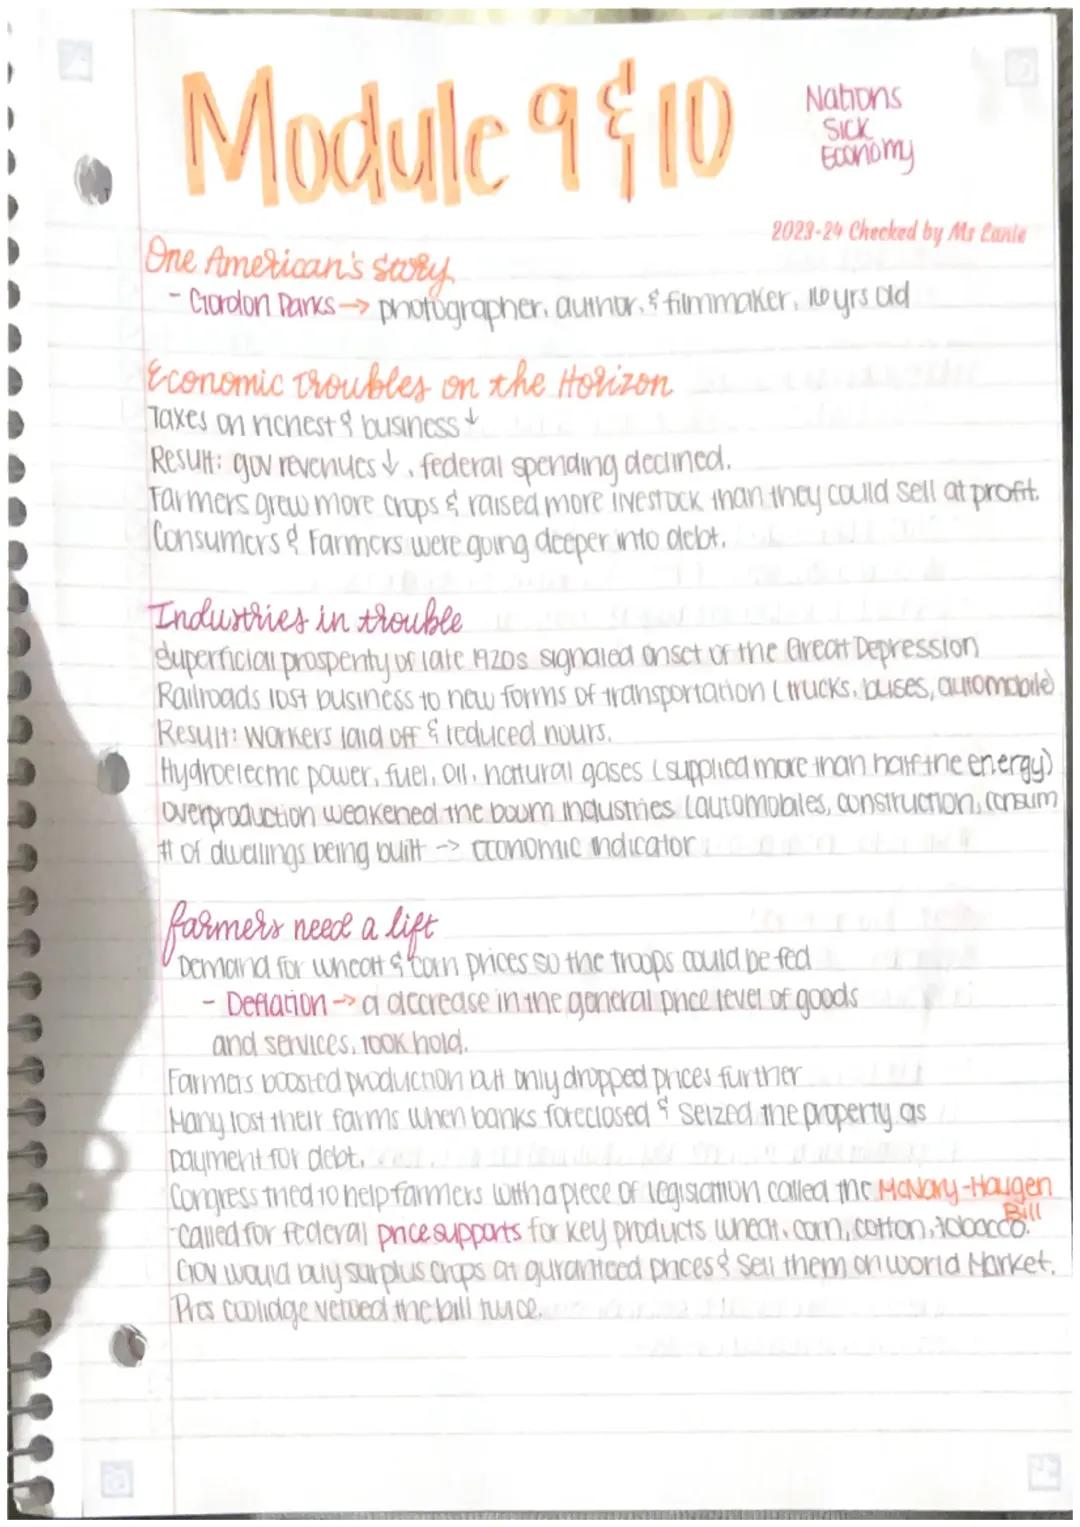 Module 9 & 10
Nations
Sick
Economy
2023-24 Checked by Ms
One American's Story
- Gordon Parks → photographer, author, & filmmaker, 16 yrs old
Economic troubles on the Horizon
Taxes on richest & business ↓
Result: gov revenues ↓, federal spending declined.
Farmers grew more crops & raised more livestock than they could sell at profit.
Consumers & Farmers were going deeper into debt.
Industries in trouble
Superficial prosperity of late 1920s signaled onset of the Great Depression
Railroads lost business to new forms of transportation (trucks, buses, automobile)
Result: Workers laid off & reduced hours.
Hydroelectric power, fuel, oil, natural gases (supplied more than half the energy)
Overproduction weakened the boom industries (automobiles, construction, consum
# of dwellings being built -> economic indicator
farmers need a lift
Demand for wheat & corn prices so the troops could be fed
- Deflation -> a decrease in the general price level of goods
and services, took hold.
Farmers boosted production but only dropped prices further
Many lost their farms when banks foreclosed & seized the property as
payment for debt.
Congress tried to help farmers with a piece of legislation called the McNary-Haugen
Bill
-called for federal price supports for key products wheat, corn, cotton, tobacco.
Gov would buy surplus crops at guranteed prices & sell them on world Market.
Pres Coolidge vetoed the bill twice.